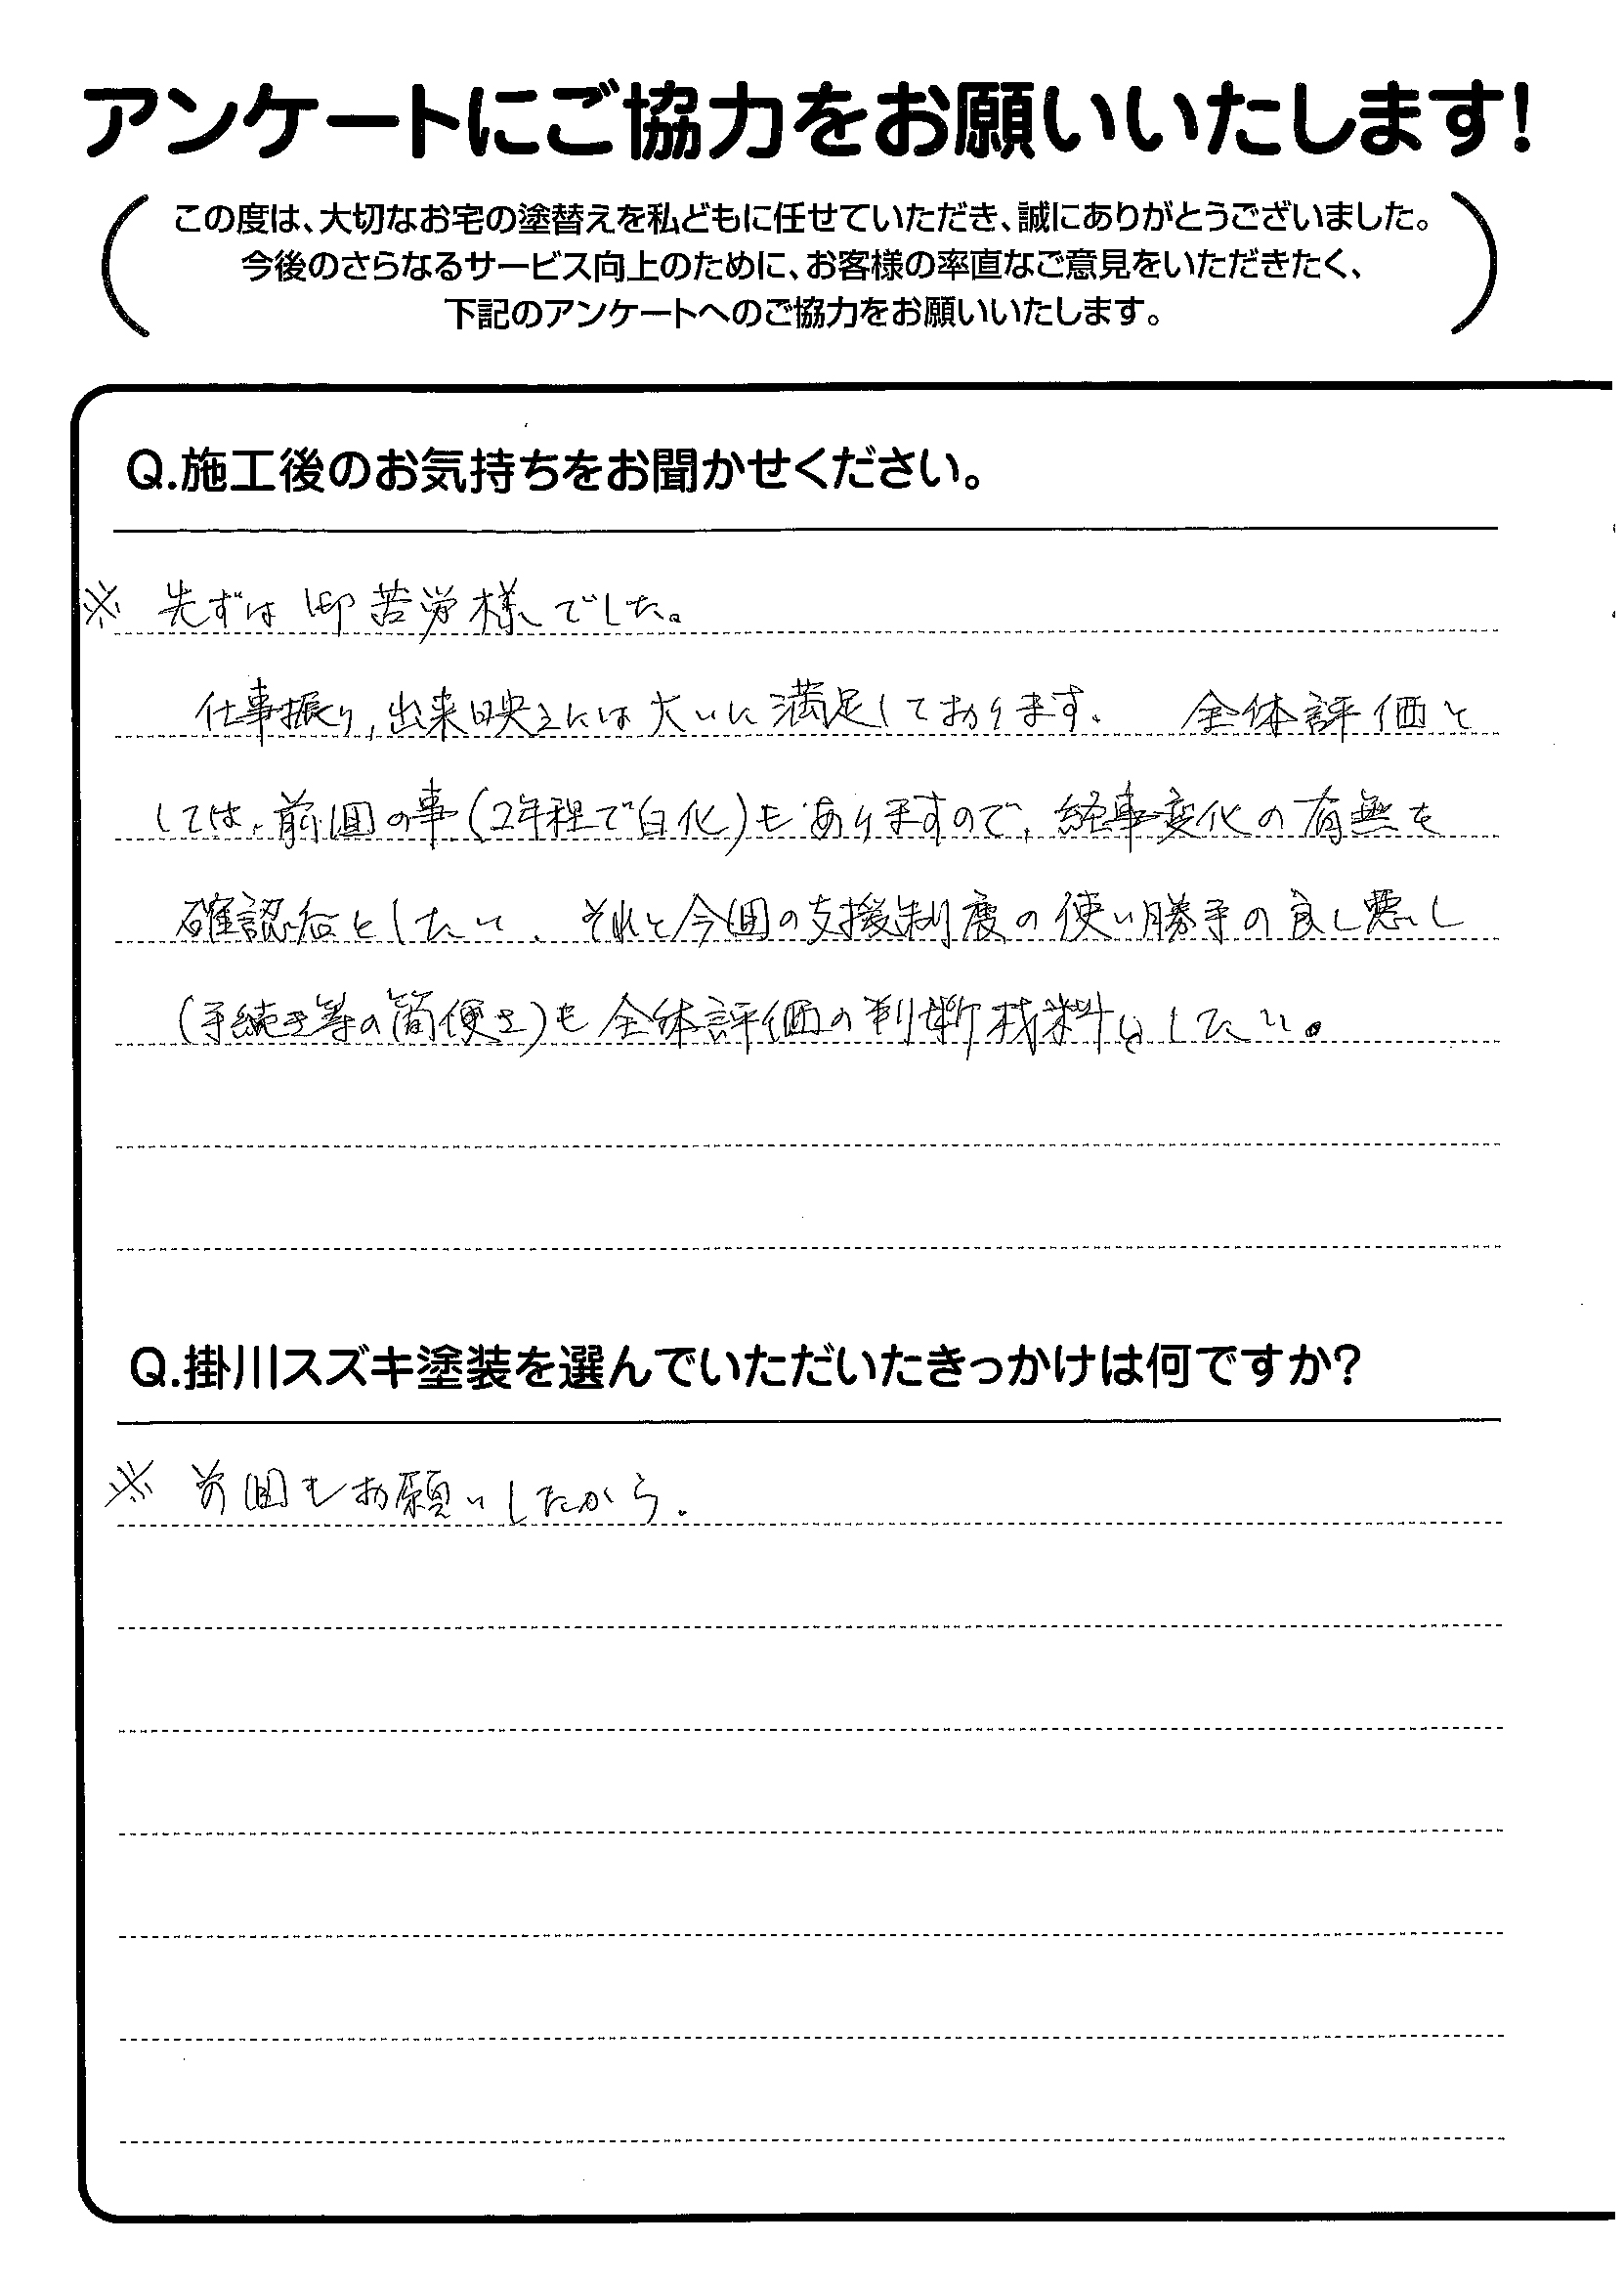 アンケートにご協力をお願いいたします!
この度は、大切なお宅の塗替えを私どもに任せていただき、誠にありがとうございました。
今後のさらなるサービス向上のために、お客様の率直なご意見をいただきたく、
下記のアンケートへのご協力をお願いいたします。
Q.施工後のお気持ちをお聞かせください。
※ 先ずは御苦労様でした。
仕事振り,出来映えには大いに満足しております。 全体評価と
しては、前回の事(2年程で白化)もありますので、経事変化の有無を
確認后としたい、それと今回の支援制度の使い勝手の良し悪し
(手続き等の簡便さ)も全体評価の判断材料としたい。
Q.掛川スズキ塗装を選んでいただいたきっかけは何ですか?
※ 前回もお願いしたから.